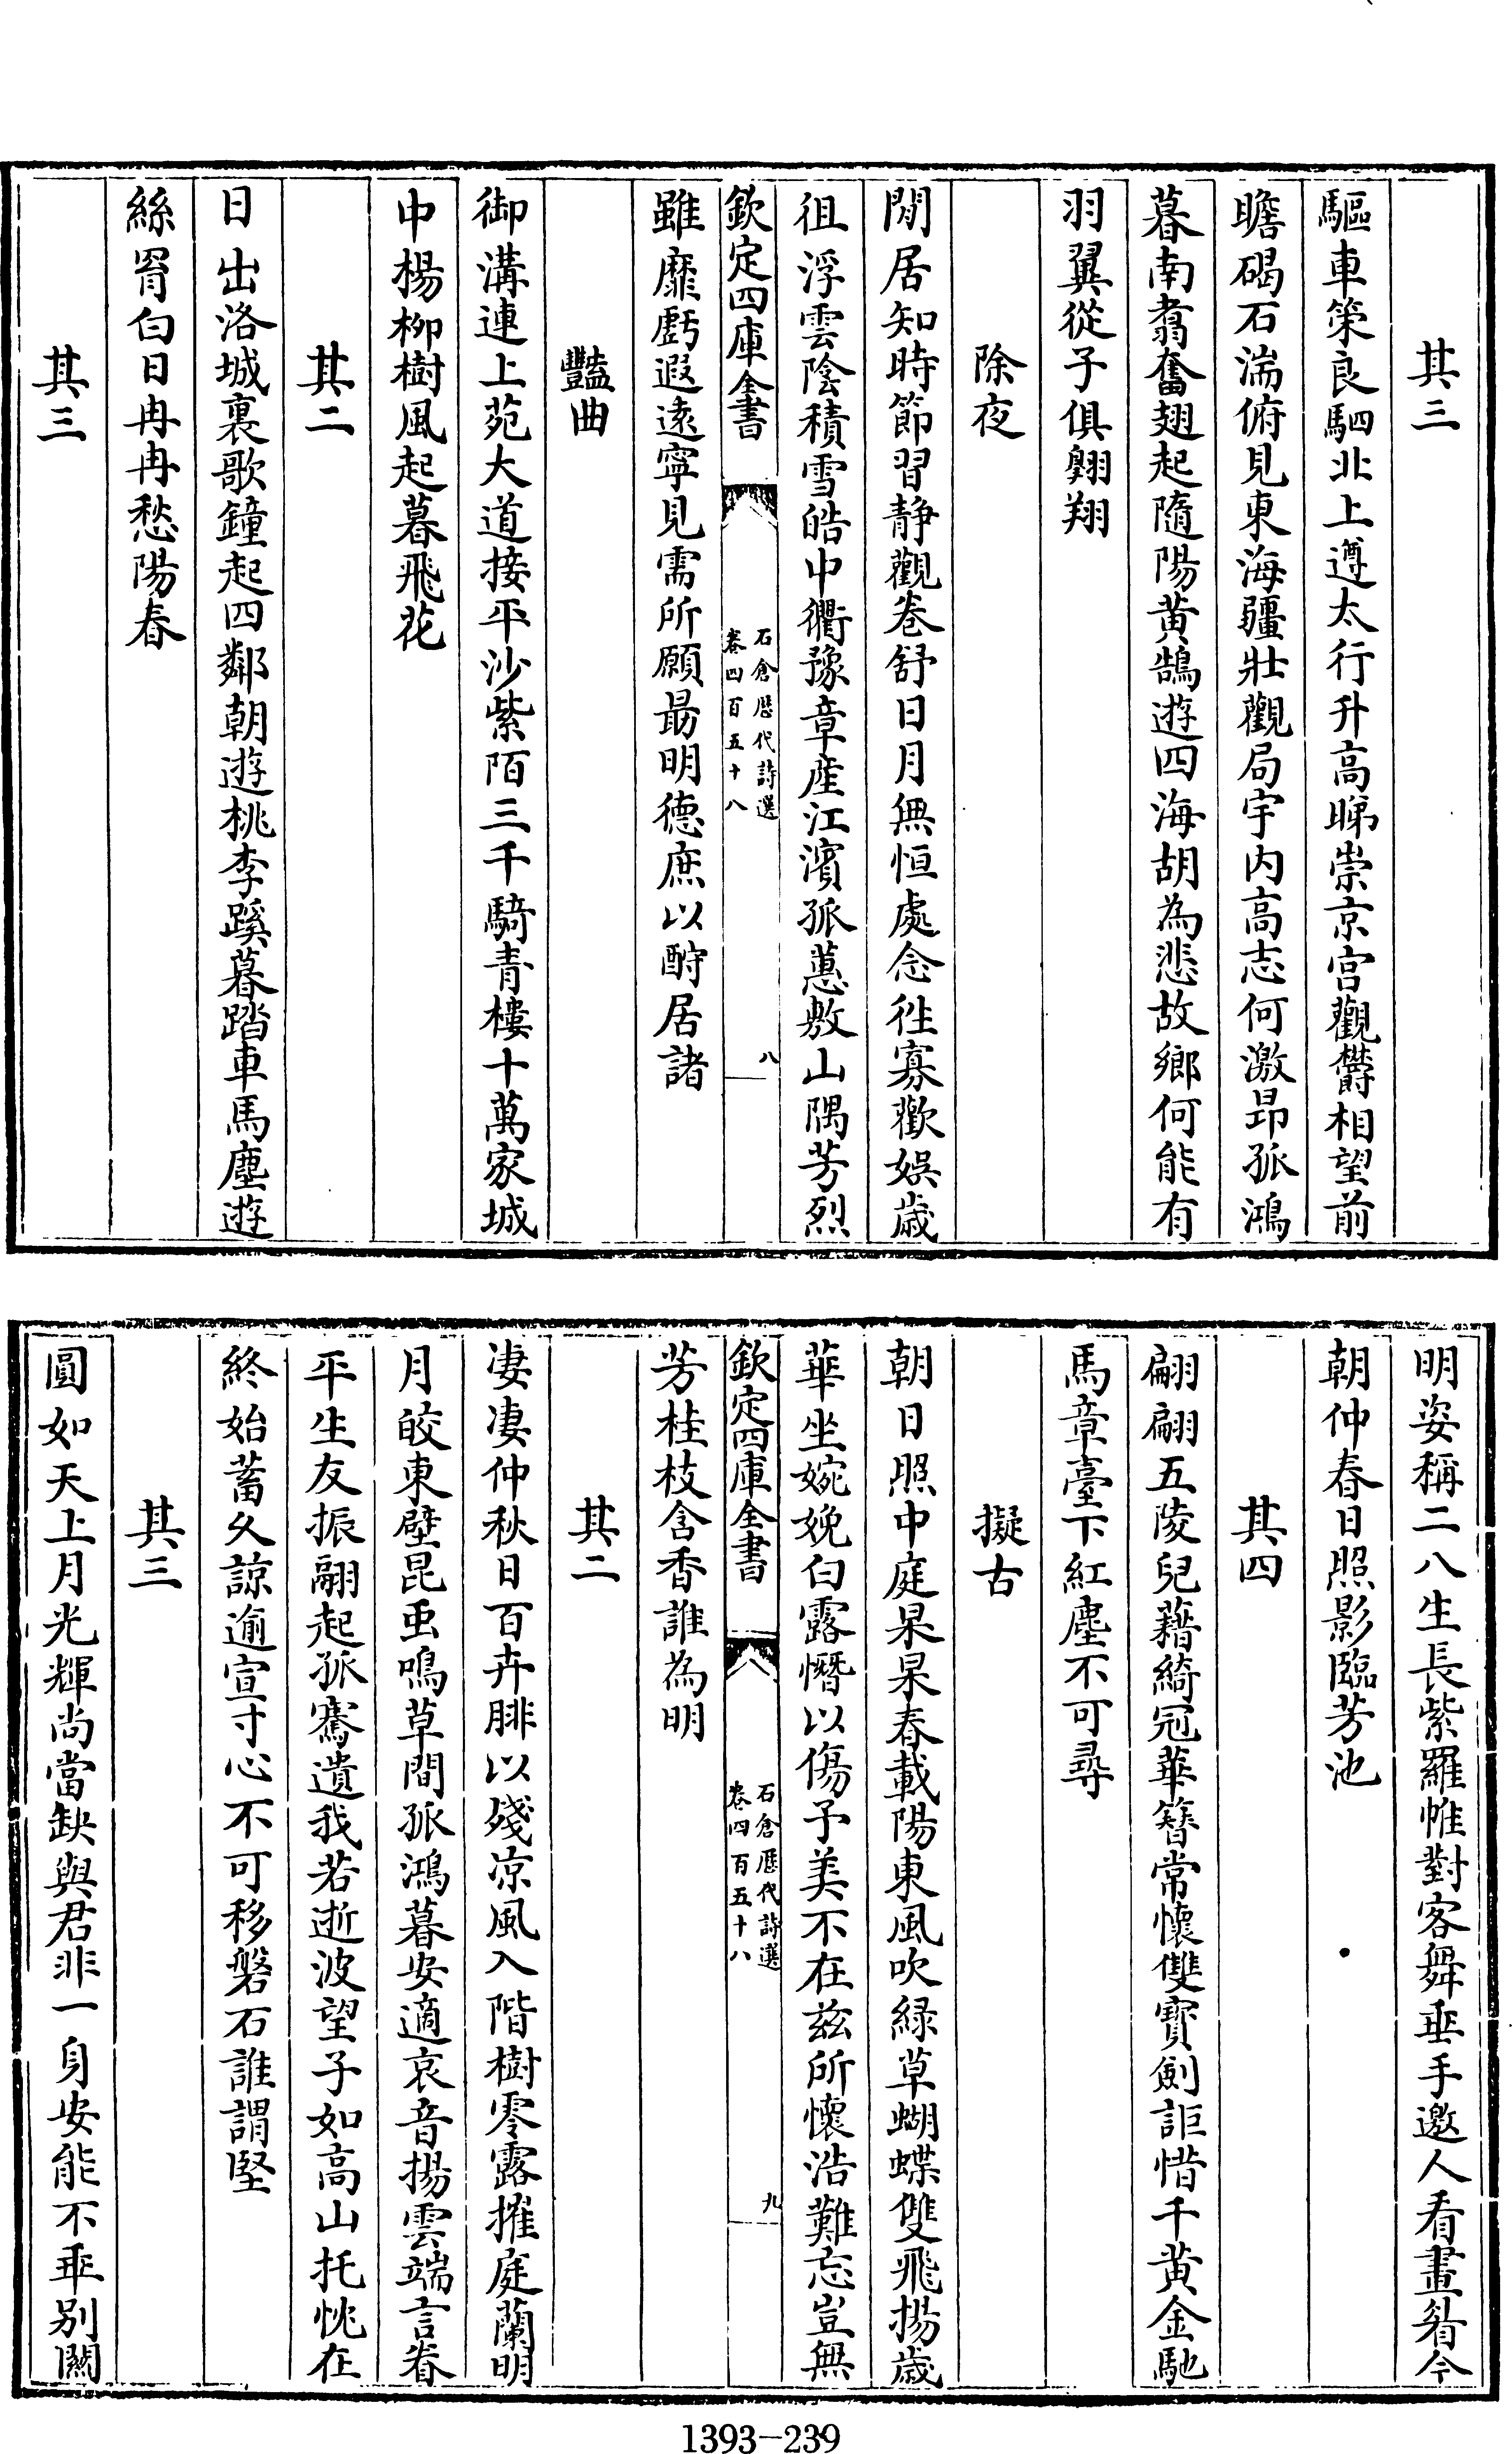 其三
驅車策良駟北上遵太行升高睇崇京宮觀鬱相望前
瞻碣石湍俯見東海疆壯觀局宇内高志何激昂孤鴻
暮南翥奮翅起隨陽黄鵠遊四海胡為悲故鄉何能有
羽翼從子俱翱翔
除夜
閒居知時節習靜觀卷舒日月無恒處念徃寡歡娱歳
徂浮雲陰積雪皓中衢豫章産江濱孤蕙敷山隅芳烈
欽定四庫全書
石倉歷代詩選
卷四百五十八
八
雖靡虧遐遠寧見需所願最明德庶以酧居諸
豔曲
御溝連上苑大道接平沙紫陌三千騎青樓十萬家城
中楊栁樹風起暮飛花
其二
日出洛城裏歌鐘起四鄰朝遊桃李蹊暮踏車馬塵遊
絲罥白日冉冉愁陽春
其三
明姿稱二八生長紫羅帷對客舞垂手邀人看畫眉今
朝仲春日照影臨芳池
其四
翩翩五陵兒藉綺冠華簪常懷雙寳劍詎惜千黄金馳
馬章臺下紅塵不可尋
擬古
朝日照中庭杲杲春載陽東風吹緑草蝴蝶雙飛揚歳
華坐婉娩白露憯以傷予美不在兹所懷浩難忘豈無
欽定四庫全書
石倉歷代詩選
卷四百五十八
九
芳桂枝含香誰為明
其二
凄凄仲秋日百卉腓以殘凉風入階樹零露摧庭蘭明
月皎東壁昆虫鳴草間孤鴻暮安適哀音揚雲端言眷
平生友振翮起孤騫遺我若逝波望子如高山托忱在
終始蓄久諒逾宣寸心不可移磐石誰謂堅
其三
圓如天上月光輝尚當缺與君非一身安能不乖别關
1393-239